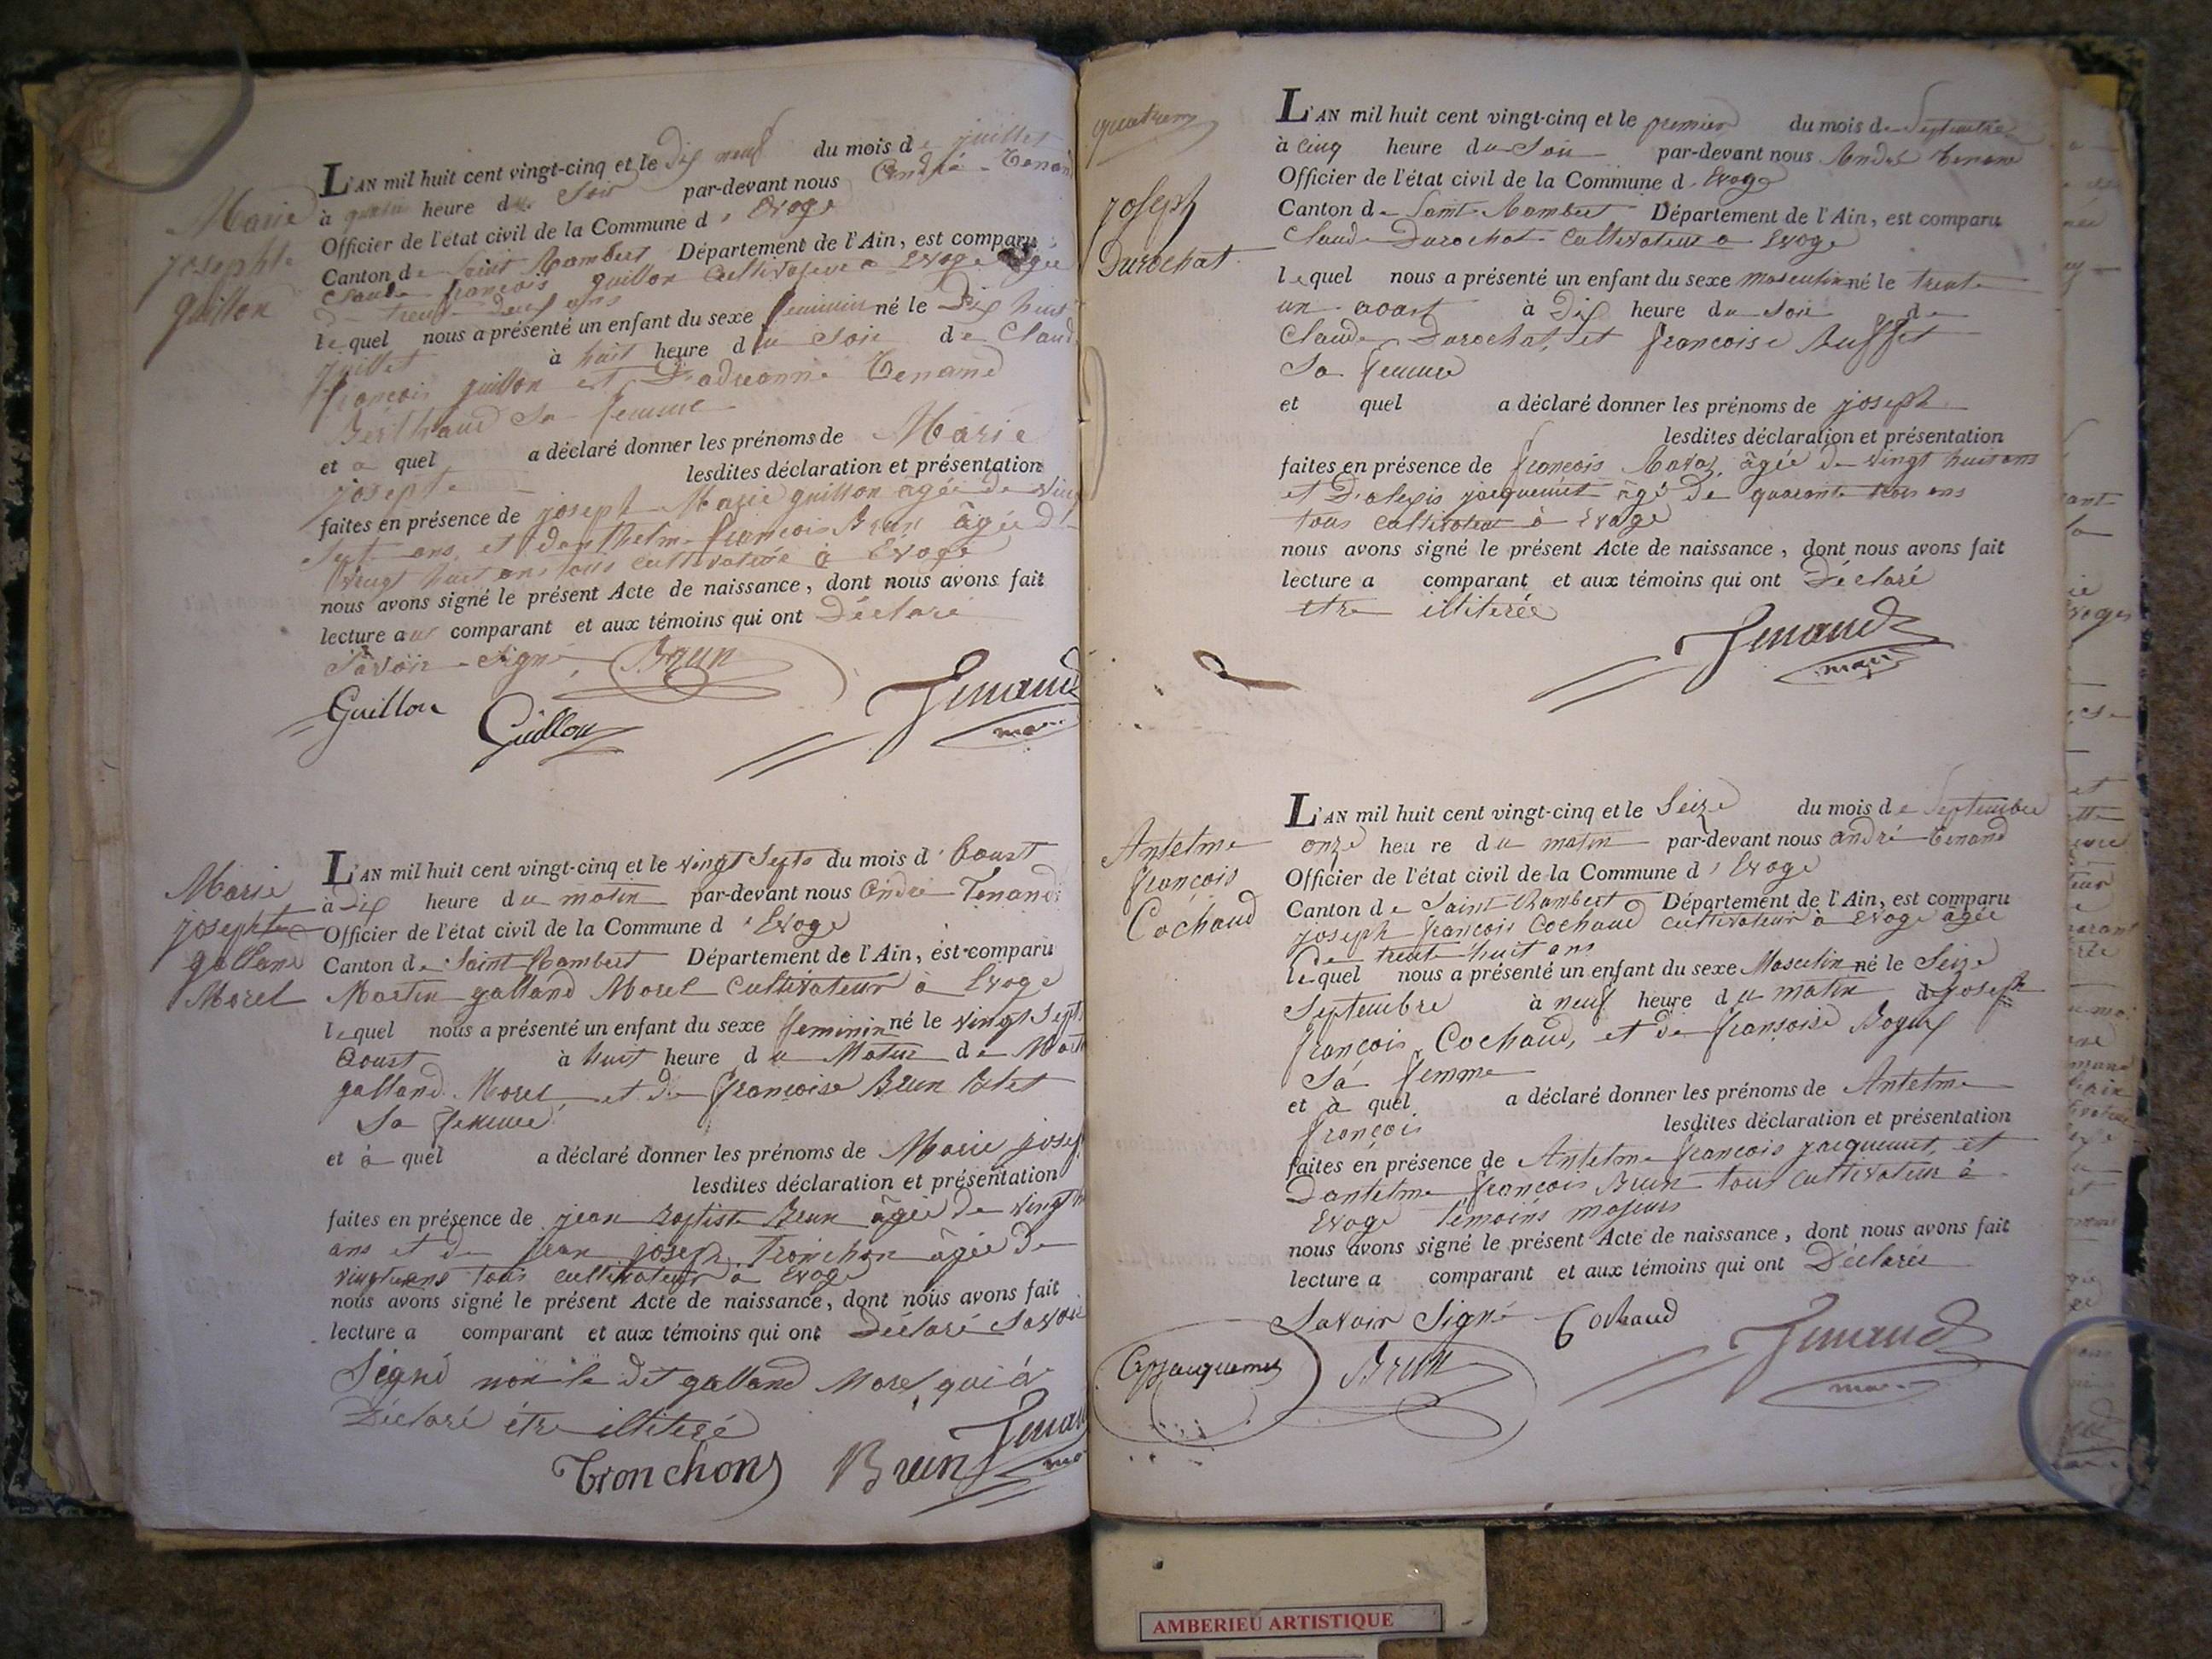 Marie
josephte
guillon
L'AN mil huit cent vingt-cinq et le Dix neuf du mois de juillet
à quatre heure du Soir par-devant nous André Tenand
Officier de l'état civil de la Commune d'Evoge
Canton de Saint Rambert Département de l'Ain, est comparu
Claude françois guillon Cultivateur a Evoge âgée
de trente deux ans
lequel nous a présenté un enfant du sexe feminin né le Dix huit
juillet à huit heure du Soir de Claude
françois guillon et D'adrianne Tenand
Berthaud Sa femme
et a quel a déclaré donner les prénoms de Marie
josephte lesdites déclaration et présentation
faites en présence de joseph Marie guillon âgée de vingt
Sept ans, et danthelme françois Brun âgée de
vingt huit ans tous cultivateur à Evoge
nous avons signé le présent Acte de naissance, dont nous avons fait
lecture au comparant et aux témoins qui ont Déclaré
Savoir Signé, Brun
Guillon Guillon Tenand
maire
Marie
josephte
galland
Morel
L'AN mil huit cent vingt-cinq et le vingt Septe du mois d'Aoust
à Dix heure du matin par-devant nous André Tenand
Officier de l'état civil de la Commune d'Evoge
Canton de Saint Rambert Département de l'Ain, est comparu
Martin galland Morel Cultivateur à Evoge
lequel nous a présenté un enfant du sexe feminin né le vingt Sept
Aoust à huit heure du Matin de Martin
galland Morel et de françoise Brun
Sa femme
et à quel a déclaré donner les prénoms de Marie joseph
lesdites déclaration et présentation
faites en présence de jean Baptiste Brun âgée de vingt
ans et de jean joseph Tronchon âgée de
tous cultivateur à Evoge
nous avons signé le présent Acte de naissance, dont nous avons fait
lecture a comparant et aux témoins qui ont Déclaré Savoir
Signé non le dit galland Morel qui à
Déclaré être illiteré
Tronchon Brun Tenand
quatrem
joseph
Durochat
L'AN mil huit cent vingt-cinq et le premier du mois de Septembre
à cinq heure du Soir par-devant nous André Tenand
Officier de l'état civil de la Commune d'Evoge
Canton de Saint Rambert Département de l'Ain, est comparu
Claude Durochat Cultivateur a Evoge
lequel nous a présenté un enfant du sexe masculin né le trente
un aoust à Dix heure du Soir de
Claude Durochat, et françoise Ruffet
Sa femme
et quel a déclaré donner les prénoms de joseph
lesdites déclaration et présentation
faites en présence de françois Ravaz, âgée de vingt huit ans
et D'alexis jacquemet âgé de quarante trois ans
tous Cultivateur à Evoge
nous avons signé le présent Acte de naissance, dont nous avons fait
lecture a comparant et aux témoins qui ont Déclaré
etre illiterée
Tenand
maire
Antelme
françois
Cochaud
L'AN mil huit cent vingt-cinq et le Seize du mois de Septembre
onze heure du matin par-devant nous andré Tenand
Officier de l'état civil de la Commune d'Evoge
Canton de Saint Rambert Département de l'Ain, est comparu
joseph françois Cochaud cultivateur à Evoge âgée
De trente huit ans
lequel nous a présenté un enfant du sexe Masculin né le Seize
Septembre à neuf heure du matin de joseph
françois Cochaud, et de françoise Bogux
Sa femme
et à quel a déclaré donner les prénoms de Antelme
françois lesdites déclaration et présentation
faites en présence de Antelme françois jacquemet, et
Dantelme françois Brun tous Cultivateur à
Evoge Témoins majeurs
nous avons signé le présent Acte de naissance, dont nous avons fait
lecture a comparant et aux témoins qui ont Déclarés
Savoir Signé Cochaud
Brun Tenand
maire
AMBERIEU ARTISTIQUE